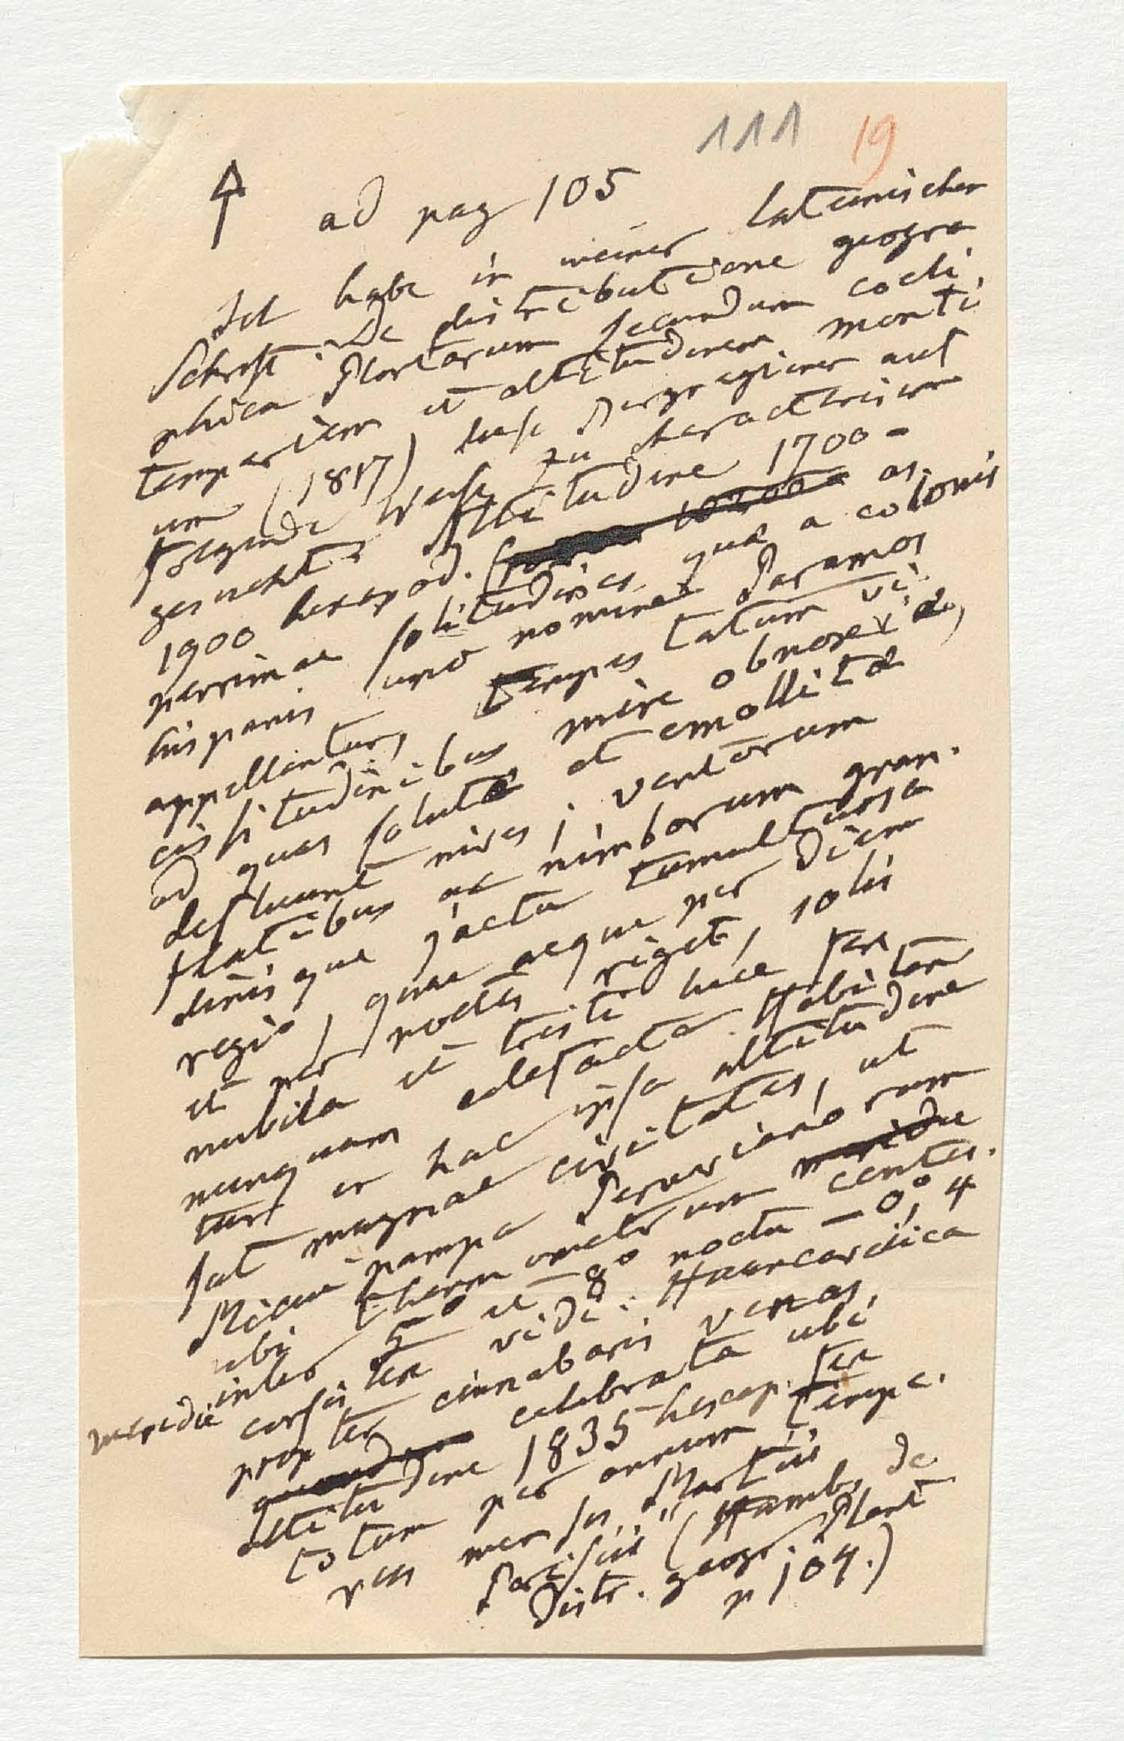 111 19
ad pag 105
Ich habe in meiner lateinischen
Schrift: De distributione geogra
phica Plantarum secundum coeli
temperiem et altitudinem monti
um (1817) diese Berggegenden auf
folgende Weise zu characterisiren
gesucht: Altitudine 1700 –
1900 hexapod. as
perrimae solitudines, quae a colonis
hispanis uno nomine Paramos
appellantur, tempestatum vi
cissitudinibus mire obnoxiae,
ad quas solutae et emollitae
defluunt nives; ventorum
flatibus ac nimborum gran
dinisque jactu tumultuosa
regio, quae aeque per diem
et per noctes riget, solis
nubila et tristi luce fere
nunquam calefacta. Habitan
tur in hac ipsa altitudine
sat magnae civitates, ut
Micuipampa Peruvianorum
ubi thermometrum meridie
meridie inter 5° et 8° noctu –0°,4 centes.
consistere vidi: Huancavelica
propter cinnabaris venas
celebrata ubi
altitudine 1835 hexap. fere
totum per annum tempe
ries mensis Martii
Parisiis" (Humb. de
distr. geogr. Plant
p 104.)